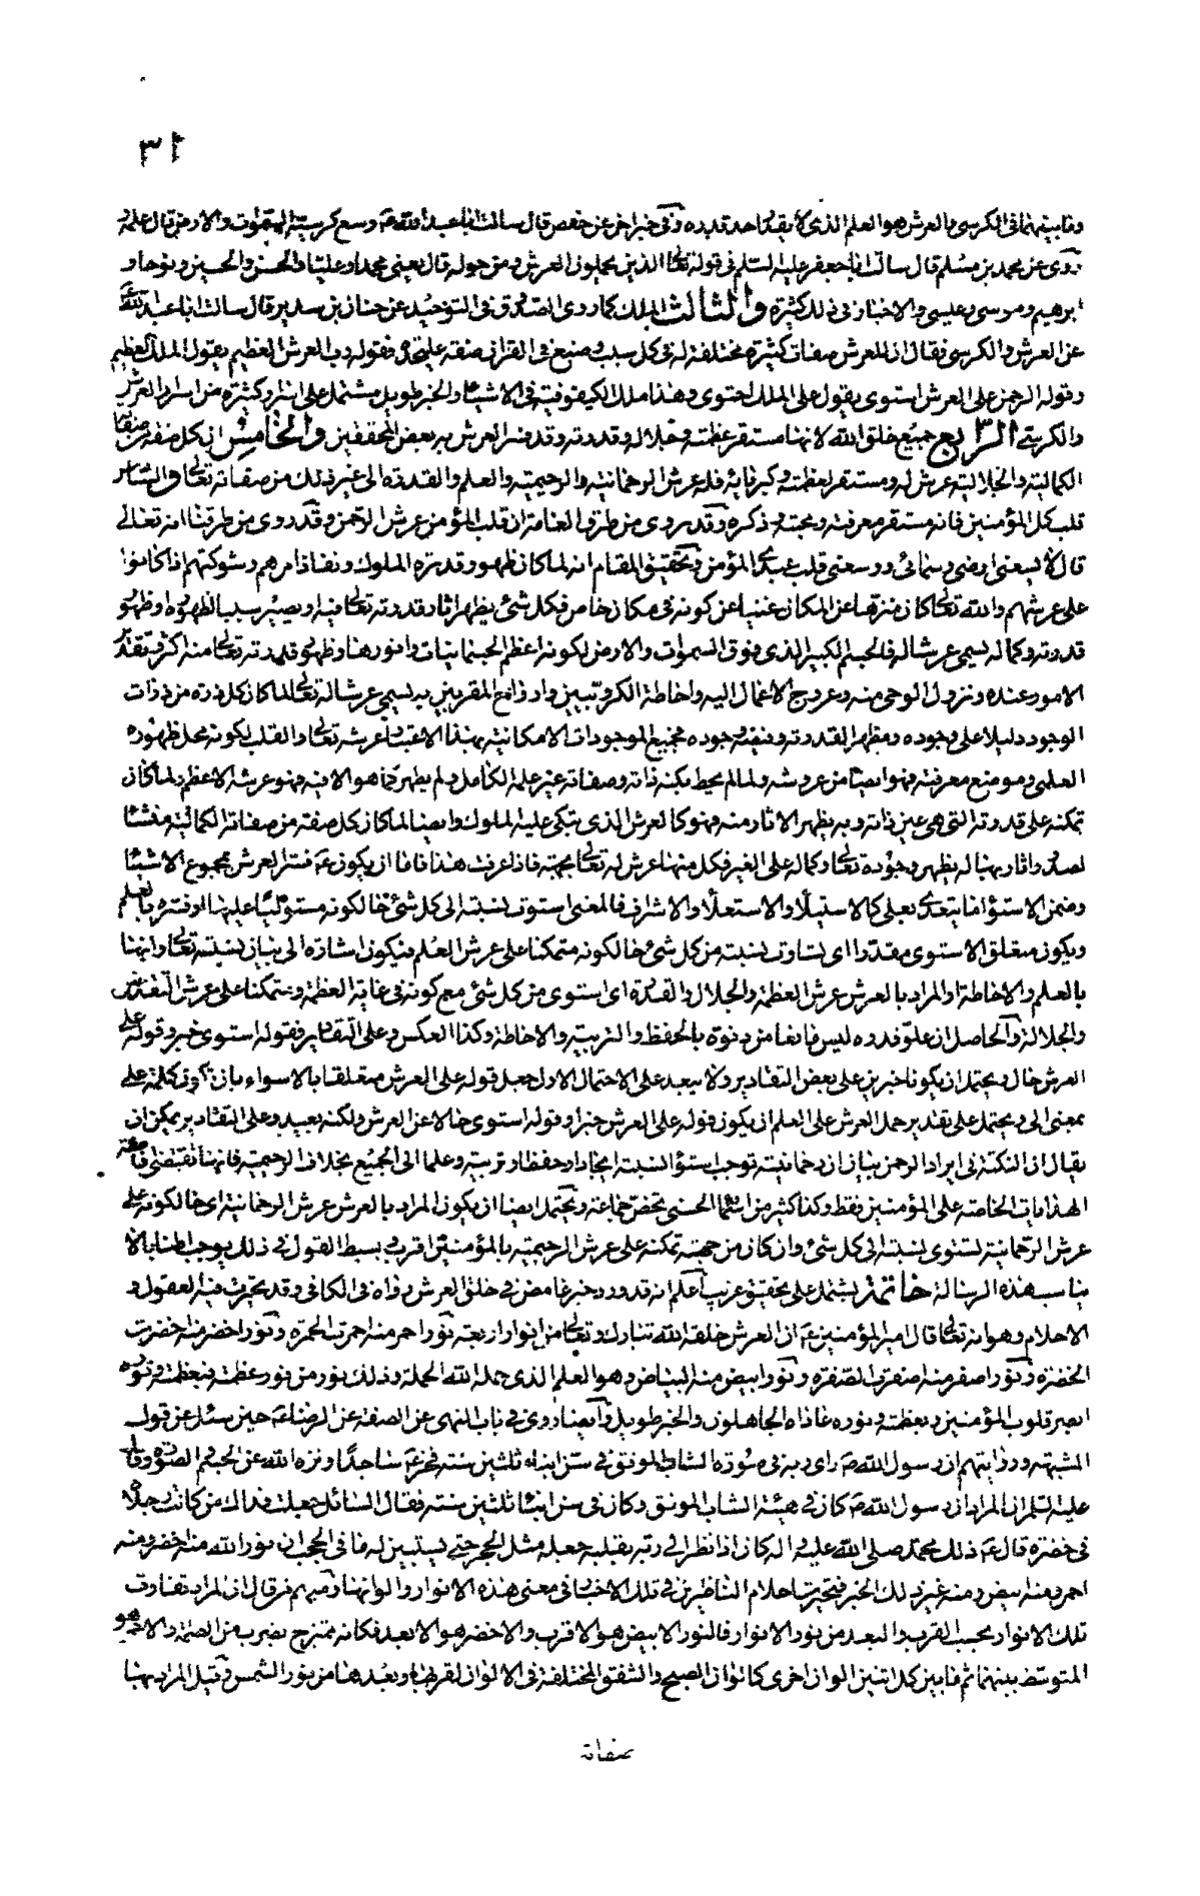 ٣١
وما بينهما في الكرسي والعرش هو العلم الذي لا يقدر احد قدره وفي خبر اخر عن حفص قال سالت ابا عبد الله ع وسع كرسيه السموات والارض قال علمه
روى عن محمد بن مسلم قال سالت ابا جعفر عليه السلم في قوله تعالى الذين يحملون العرش ومن حوله قال يعني محمدا وعليا والحسن والحسين ونوحا و
ابرهيم وموسى وعيسى والاخبار في ذلك كثيرة والثالث الملك كما روى الصدوق في التوحيد عن حنان بن سدير قال سالت ابا عبد الله ع
عن العرش والكرسي فقال ان للعرش صفات كثيرة مختلفة له في كل سبب وضع في القران صفة على حدة فقوله رب العرش العظيم يقول الملك العظيم
وقوله الرحمن على العرش استوى يقول على الملك احتوى وهذا ملك الكيفوفية في الاشياء والخبر طويل مشتمل على اثار كثيرة من اسرار العرش
والكرسي الرابع جميع خلق الله لانها مستقر عظمته وجلاله وقدرته وقد فسر العرش به بعض المحققين والخامس ان كل صفة من صفاته
الكمالية والجلالية عرش له ومستقر لعظمته وكبريائه فله عرش الرحمانية والرحيمية والعلم والقدرة الى غير ذلك من صفاته تعالى والسادس
قلب كل المؤمنين فانه مستقر معرفته ومحبته وذكره وقد يروى من طرق العامة ان قلب المؤمن عرش الرحمن وقد روى من طرقنا انه تعالى
قال لا يسعني ارضي وسمائي ووسعني قلب عبدي المؤمن وتحقيق المقام انه لما كان ظهور قدرة الملوك ونفاذ امرهم وشوكتهم اذا كانوا
على عرشهم والله تعالى كان منزها عن المكان غنيا عن كونه في مكان خاص فكل شئ يظهر اثار قدرته تعالى فيه او يصير سببا لظهوره او ظهور
قدرته وكماله يسمى عرشا له فالجسم الكبير الذي فوق السموات والارض لكونه اعظم الجسمانيات وانورها وظهور قدرته تعالى منه اكثر وتقدير
الامور عنده ونزول الوحي منه وعروج الاعمال اليه واحاطة الكروبيين وارواح المقربين به يسمى عرشا له تعالى لما كان كل ذرة من ذرات
الوجود دليلا على وجوده ومظهرا لقدرته وفيضه وجوده فجميع الموجودات الامكانية بهذا الاعتبار عرشه تعالى والقلب لكونه محل ظهوره
العلمي وموضع معرفته فهو ايضا من عروشه ولما لم يحط بكنه ذاته وصفاته غير علمه الكامل ولم يظهر كما هو الا فيه فهو عرشه الاعظم ولما كان
تمكنه على قدرته التي هي عين ذاته وبه يظهر الاثار منه فهو كالعرش الذي يتكي عليه الملوك وايضا لما كان كل صفة من صفاته الكمالية منشئا
لصدور اثار بها له يظهر وجوده تعالى وكماله على الغير فكل منها عرش له تعالى بجهة فاذا عرفت هذا فاما ان يكون ع فسر العرش بمجموع الاشياء
وضمن الاستواء ما يتعدى بعلى كالاستيلاء والاستعلاء والاشراف فالمعنى استوت نسبته الى كل شئ حالكونه مستوليا عليها او فسره بالعلم
ويكون متعلق الاستوى مقدرا اي تساوت نسبته من كل شئ حالكونه متمكنا على عرش العلم فيكون اشارة الى بيان نسبته تعالى وانها
بالعلم والاحاطة او المراد بالعرش عرش العظمة والجلال والقدرة اي استوى من كل شئ مع كونه في غاية العظمة ومتمكنا على عرش التقدس
والجلالة والحاصل ان علو قدره ليس مانعا من دنوه بالحفظ والتربية والاحاطة وكذا العكس وعلى التقادير فقوله استوى خبر وقوله على
العرش حال ويحتمل ان يكونا خبرين على بعض التقادير ولا يبعد على الاحتمال الاول جعل قوله على العرش متعلقا بالاسواء بان تكون كلمة على
بمعنى الى ويحتمل على تقدير حمل العرش على العلم ان يكون قوله على العرش خبرا وقوله استوى حالا عن العرش ولكنه بعيد وعلى التقادير يمكن ان
يقال ان النكتة في ايراد الرحمن بيان ان رحمانيته توجب استواء النسبة ايجادا وحفظا وتربية وعلما الى الجميع بخلاف الرحيمية فانها تقتضي افاضة
الهدايات الخاصة على المؤمنين فقط وكذا كثير من اسمائه الحسنى تخص جماعة ويحتمل ايضا ان يكون المراد بالعرش عرش الرحمانية اي حالكونه على
عرش الرحمانية تستوي نسبته الى كل شئ وان كان من جهة تمكنه على عرش الرحيمية بالمؤمنين اقرب وبسط القول في ذلك يوجب اطنابا لا
يناسب هذه الرسالة خاتمة يشتمل على تحقيق عريب اعلم انه قد ورد خبر غامض في خلق العرش رواه في الكافي وقد تحيرت فيه العقول و
الاحلام وهو انه تعالى قال امير المؤمنين ع ان العرش خلقه الله تبارك وتعالى من انوار اربعة نور احمر منه احمرت الحمرة ونور اخضر منه اخضرت
الخضرة ونور اصفر منه اصفرت الصفرة ونور ابيض منه البياض وهو العلم الذي حمله الله الحملة وذلك نور من نور عظمته فبعظمته ونوره
ابصر قلوب المؤمنين وبعظمته ونوره عاداه الجاهلون والخبر طويل وايضا روى في باب النهي عن الصفة عن الرضا ع حين سئل عن قول
المشبهة ورواياتهم ان رسول الله ص راى ربه في صورة الشاب الموفق في سن ابناء ثلثين سنة فخر ع ساجدا ونزه الله عن الجسم والصورة وقال
عليه السلم ان المراد ان رسول الله ص كان في هيئة الشاب الموفق وكان في سن ابناء ثلثين سنة فقال السائل جعلت فداك من كانت رجلاه
في خضرة قال ع ذلك محمد صلى الله عليه واله كان اذا نظر الى ربه بقلبه جعله مثل الحجب حتى يستبين له ما في الحجب ان نور الله منه اخضر ومنه
احمر ومنه ابيض ومنه غير ذلك الخبر فتحيرت احلام الناظرين في تلك الاخبار في معنى هذه الانوار والوانها فمنهم من قال ان المراد تفاوت
تلك الانوار بحسب القرب والبعد من نور الانوار فالنور الابيض هو الاقرب والاخضر هو الابعد فكانه ممتزج بضرب من الظلمة والاحمر هو
المتوسط بينهما ثم ما بين كل اثنين الوان اخرى كالوان الصبح والشفق المختلفة في الالوان لقربها وبعدها من نور الشمس وقيل المراد بها
صفاته